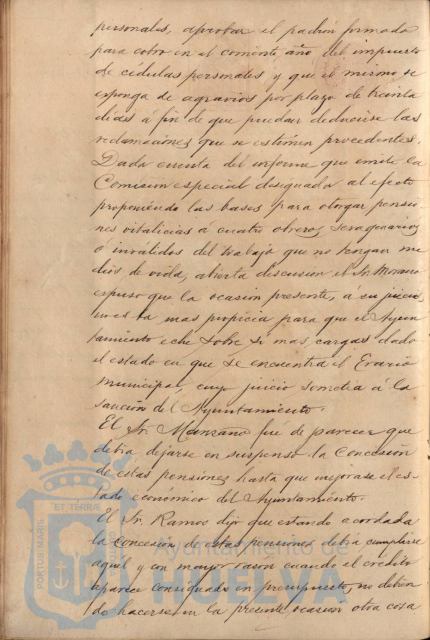 personales, aprobar el padrón formado
para cobro en el corriente año del impuesto
de cédulas personales y que el mismo se
esponga de agravios por plazo de treinta
dias á fin de que puedan deducirse las
reclamaciones que se estimen procedentes.
Dada cuenta del informe que emite la
Comision especial designada al efecto
proponiendo las bases para otorgar pensio-
nes vitalicias á cuatro obreros sexagenarios
ó inválidos del trabajo que no tengan me
dios de vida, abierta discusion el Sr. Moreno
espuso que la ocasion presente, á su juicio
no es la mas propicia para que el Ayun
tamiento eche sobre sí mas cargas dado
el estado en que se encuentra el Erario
municipal, cuyo juicio sometia á la
sancion del Ayuntamiento.
El Sr. Manzano fué de parecer que
debia dejarse en suspenso la concesion
de estas pensiones hasta que mejorase el es-
tado económico del Ayuntamiento.
El Sr. Ramos dijo que estando acordada
la concesion de estas pensiones debia cumplirse
aquel y con mayor razon cuando el crédito
aparece consignado en presupuesto, no debien
do hacerse en la presente ocasion otra cosa
PORTUS MARIS ET TERRAE
Ayuntamiento de
HUELVA